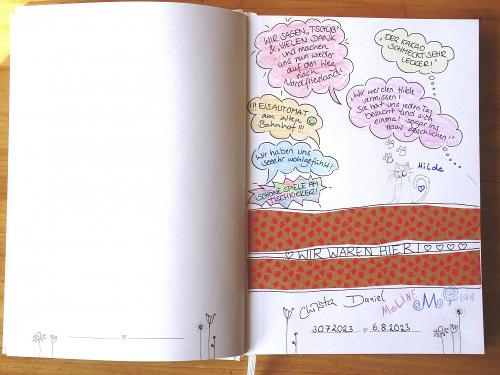 WIR SAGEN „TSCHÜß“
& VIELEN DANK
... und machen
uns nun wieder
auf den Weg
nach
Nordfriesland!
„DER KAKAO
SCHMECKT SEHR
LECKER!“
!!! EISAUTOMAT
am alten
Bahnhof!!!
Wir werden Hilde
vermissen!
Sie hat uns jeden Tag
besucht und sich
einmal sogar ins
Haus geschlichen!!
Wir haben uns
seeehr wohlgefühlt!
SCHÖNE SPIELE AM
TISCHKICKER!
Hilde
WIR WAREN HIER!
Christa Daniel MaLINE
30.7.2023 - 6.8.2023